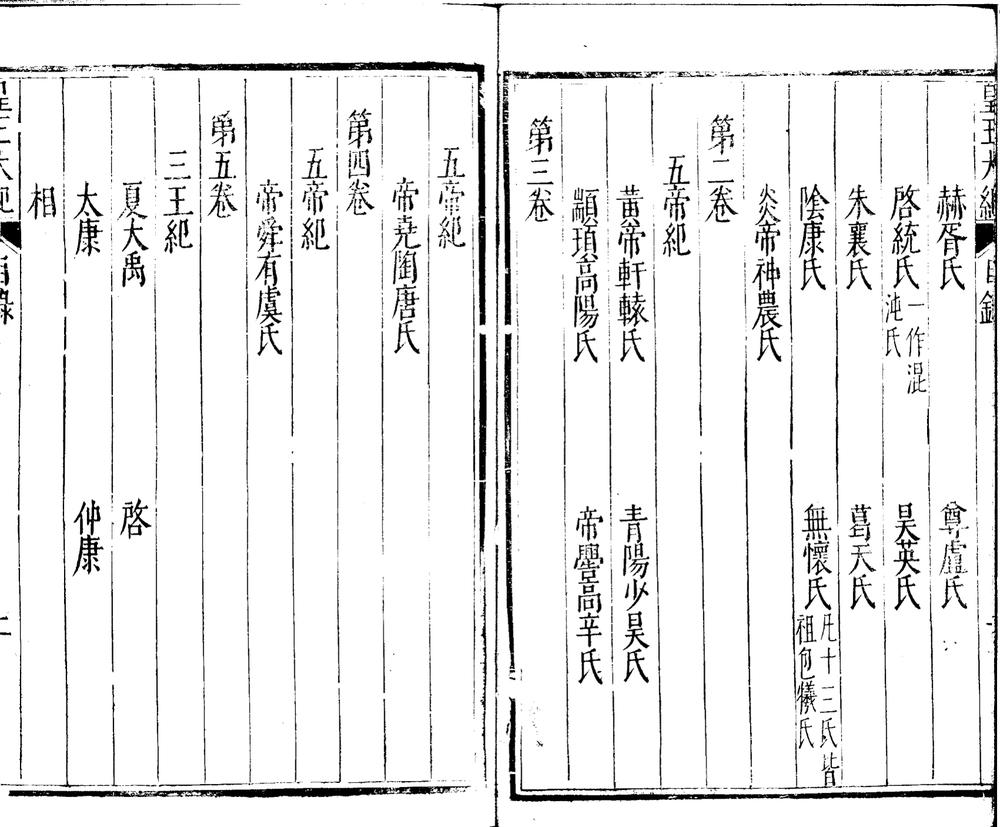 皇王大紀 目錄
赫胥氏 尊盧氏
啓統氏一作混沌氏 昊英氏
朱襄氏 葛天氏
陰康氏 無懷氏凡十三氏皆祖包犧氏
炎帝神農氏
第二卷
五帝紀
黃帝軒轅氏 青陽少昊氏
顓頊高陽氏 帝嚳高辛氏
第三卷
五帝紀
帝堯陶唐氏
第四卷
五帝紀
帝舜有虞氏
第五卷
三王紀
夏大禹 啓
太康 仲康
相
皇王大紀 目錄 二